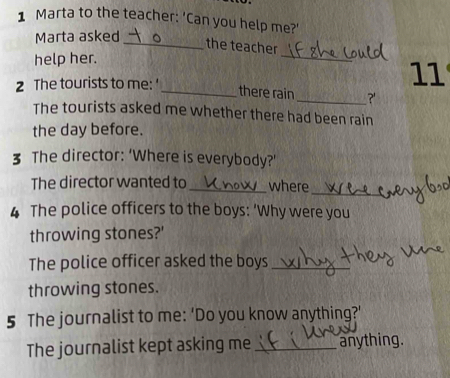 1 Marta to the teacher: 'Can you help me?'
Marta asked to the teacher if she could
help her.
11
2 The tourists to me: '________ there rain ________?'
The tourists asked me whether there had been rain
the day before.
3 The director: 'Where is everybody?'
The director wanted to know where were everybod
4 The police officers to the boys: 'Why were you
throwing stones?'
The police officer asked the boys why they were
throwing stones.
5 The journalist to me: 'Do you know anything?'
The journalist kept asking me if i knew anything.